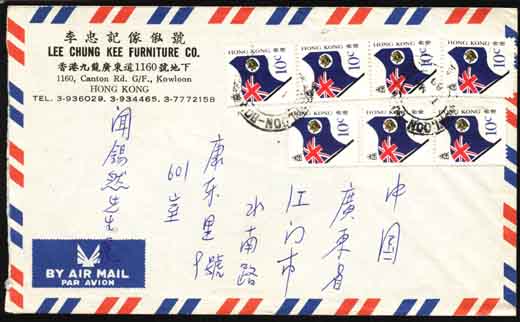 李忠記傢俬號
LEE CHUNG KEE FURNITURE CO.
香港九龍廣東道1160號地下
1160, Canton Rd. G/F., Kowloon
HONG KONG
TEL. 3-936029. 3-934465. 3-7772158
HONG KONG 香港
10c
HONG KONG 香港
10c
HONG KONG 香港
10c
HONG KONG 香港
10c
HONG KONG 香港
10c
HONG KONG 香港
10c
HONG KONG 香港
10c
中國
廣東省
江门市
水南路
康东里
號
601室
闻錫然先生
BY AIR MAIL
PAR AVION